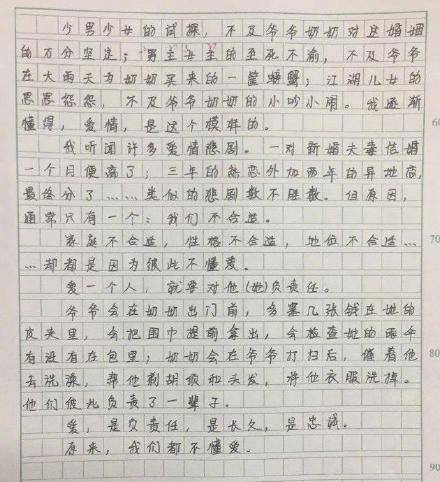 少男少女的试探，不及爷爷奶奶对这婚姻
的万分坚定；男主女主的至死不渝，不及爷爷
在大雨天为奶奶买来的一筐螃蟹；江湖儿女的
恩恩怨怨，不及爷爷奶奶的小吵小闹。我逐渐
懂得，爱情，是这个模样的。
60
我听闻许多爱情悲剧。一对新婚夫妻结婚
一个月便离了；三年的热恋外加两年的异地恋，
最终分了……类似的悲剧数不胜数。但原因，
通常只有一个：我们不合适。
家庭不合适，性格不合适，地位不合适…
70
…却都是因为彼此不懂爱。
爱一个人，就要对他(她)负责任。
爷爷会在奶奶出门前，多塞几张钱在她的
皮夹里，会把围巾提前拿出，会检查她的雨伞
有没有在包里；奶奶会在爷爷打扫后，催着他
80
去洗澡，帮他剃胡须和头发，将他衣服洗掉。
他们彼此负责了一辈子。
爱，是负责任，是长久，是忠诚。
原来，我们都不懂爱。
90